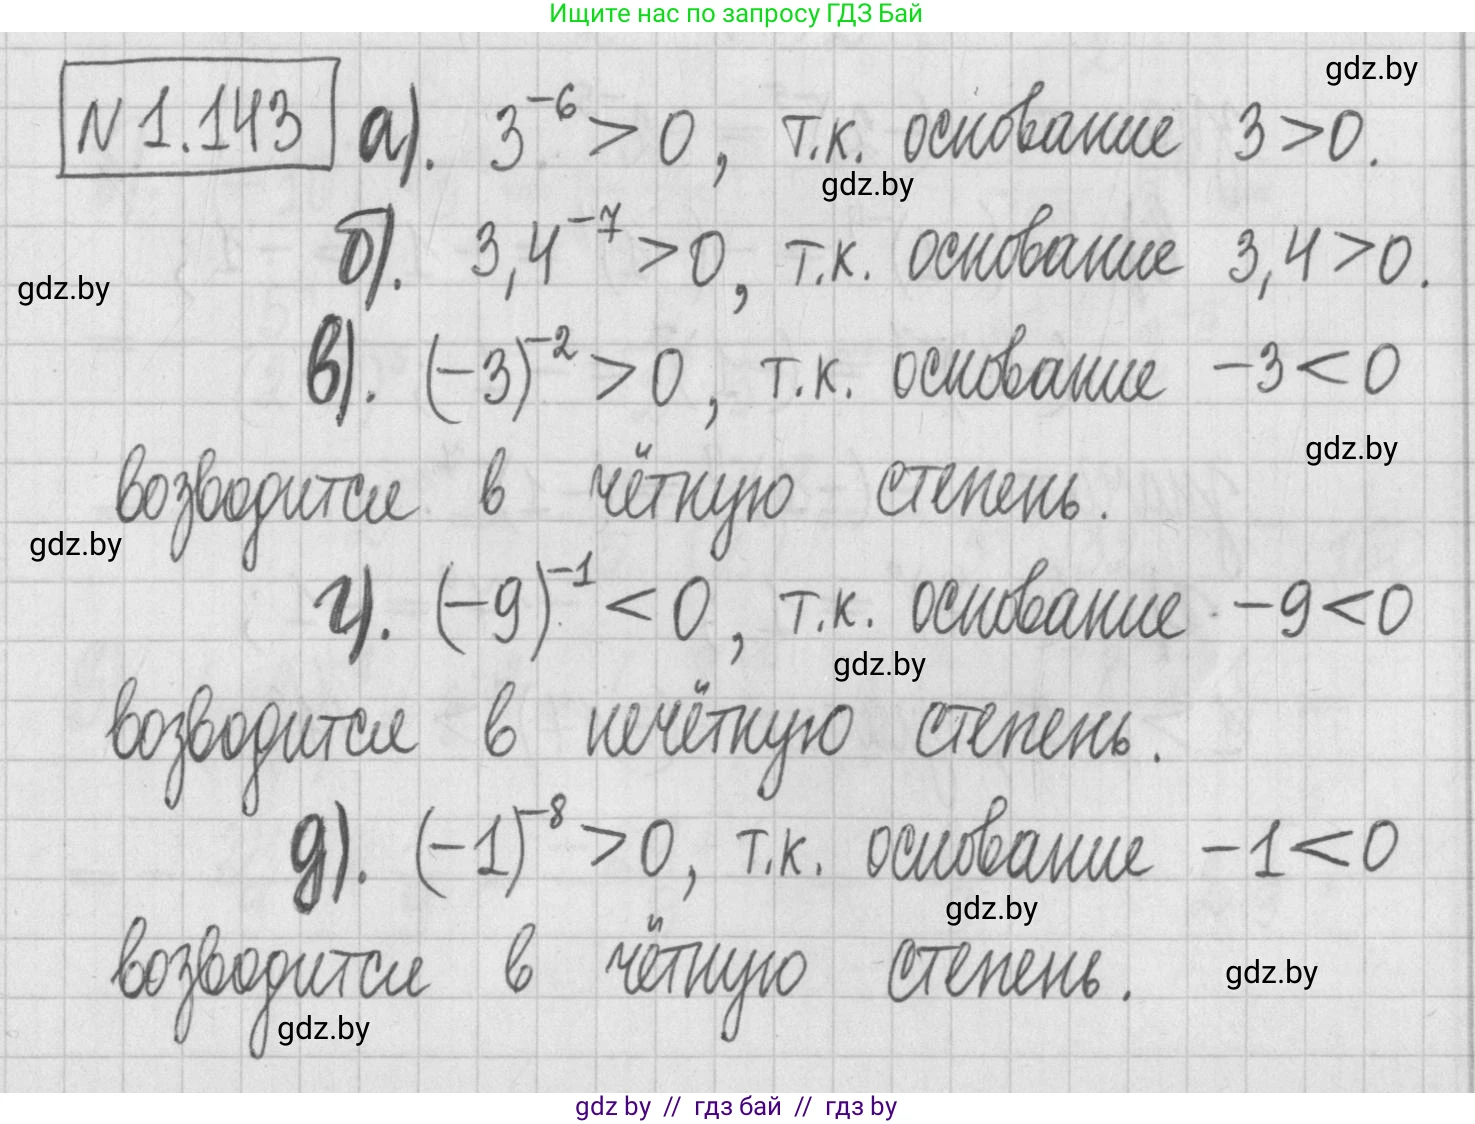 Ищите нас по запросу ГДЗ Бай
gdz.by
N 1.143 а). 3⁻⁶ > 0, т.к. основание 3 > 0.
gdz.by
б). 3,4⁻⁷ > 0, т.к. основание 3,4 > 0.
gdz.by
в). (-3)⁻² > 0, т.к. основание -3 < 0
gdz.by
возводится в чётную степень.
gdz.by
г). (-9)⁻¹ < 0, т.к. основание -9 < 0
gdz.by
возводится в нечётную степень.
д). (-1)⁻⁸ > 0, т.к. основание -1 < 0
gdz.by
возводится в чётную степень.
gdz.by
gdz.by
gdz by // гдз бай // гдз by